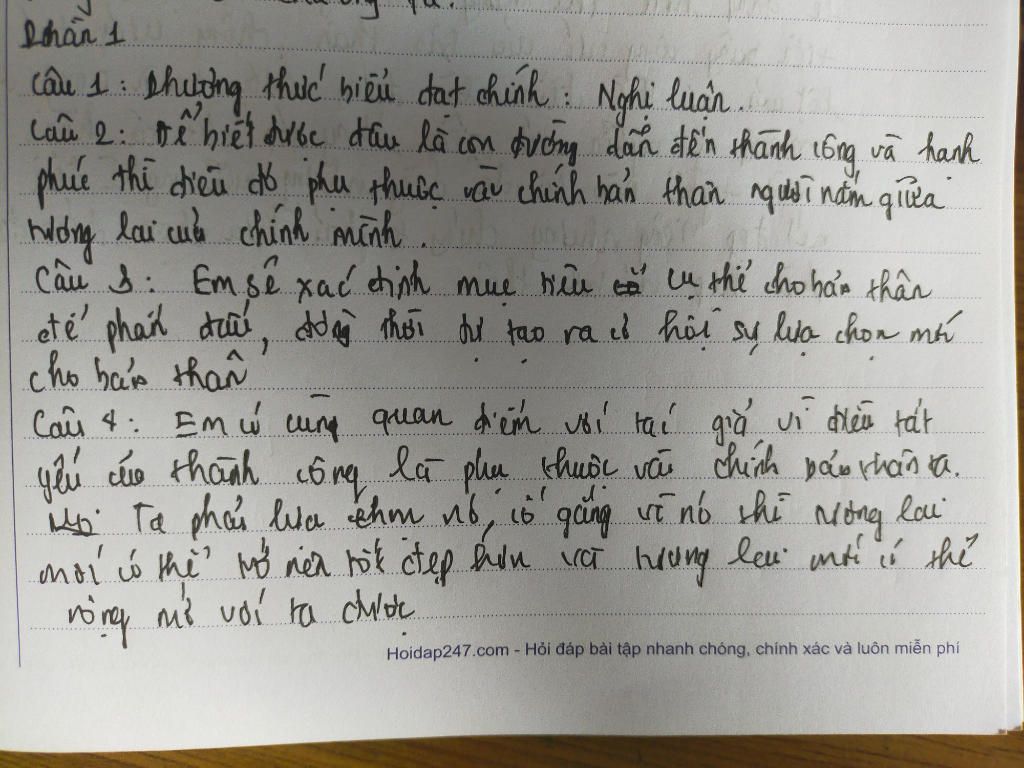 Phần 1
Câu 1: Phương thức biểu đạt chính: Nghị luận.
Câu 2: Để biết được đâu là con đường dẫn đến thành công và hạnh
phúc thì điều đó phụ thuộc vào chính bản thân người nắm giữa
tương lai của chính mình.
Câu 3: Em sẽ xác định mục tiêu cụ thể cho bản thân
để phấn đấu, đồng thời tự tạo ra cơ hội sự lựa chọn mới
cho bản thân
Câu 4: Em có cùng quan điểm với tác giả vì điều tất
yếu của thành công là phụ thuộc vào chính bản thân ta.
Ta phải lựa chọn nó, cố gắng vì nó thì tương lai
mới có thể trở nên tốt đẹp hơn và tương lai mới có thể
rộng mở với ta được
Hoidap247.com - Hỏi đáp bài tập nhanh chóng, chính xác và luôn miễn phí